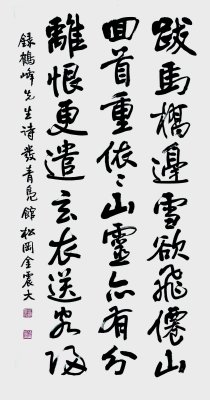 跋馬橋邊雪欲飛僊山
回首重依〻山靈亦有分
離恨更遣玄衣送客歸
錄鶴峰先生詩 青鳧館 松岡金震大